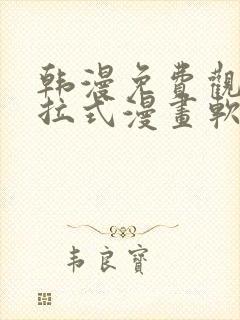 韩漫免費觀
拉式漫畫軟
韦良寶